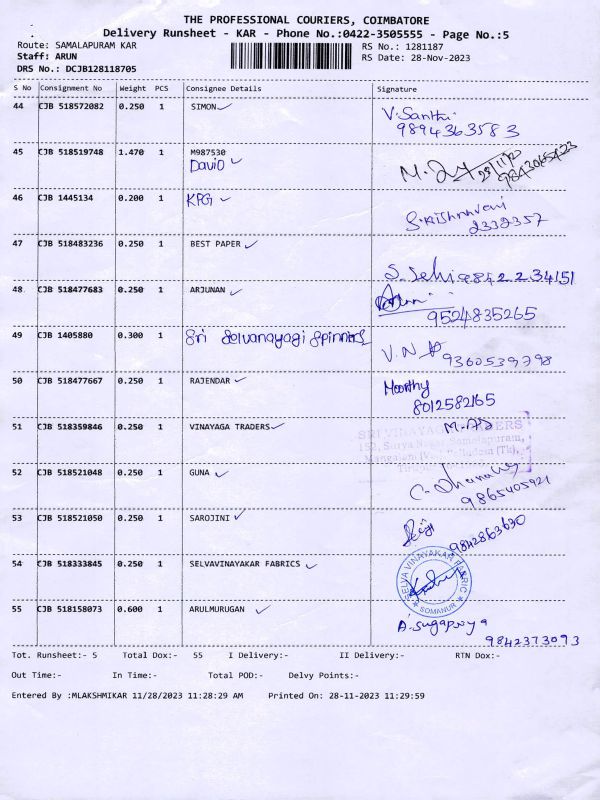 THE PROFESSIONAL COURIERS, COIMBATORE
Delivery Runsheet - KAR - Phone No.:0422-3505555 - Page No.:5
Route: SAMALAPURAM KAR RS No.: 1281187
Staff: ARUN RS Date: 28-Nov-2023
DRS No.: DCJB128118705
S No Consignment No Weight PCS Consignee Details Signature
44 CJB 518572082 0.250 1 SIMON V. Santhi
9894363583
45 CJB 518519748 1.470 1 M987530
DAVID M.
46 CJB 1445134 0.200 1 KPG S. Krishnaveni
2332357
47 CJB 518483236 0.250 1 BEST PAPER
S. Selvi 9842234151
48 CJB 518477683 0.250 1 ARJUNAN
9524835265
49 CJB 1405880 0.300 1 Sri Selvanayagi Spinners V.N
9360539798
50 CJB 518477667 0.250 1 RAJENDAR Moorthy
8012582165
51 CJB 518359846 0.250 1 VINAYAGA TRADERS
SRI VINAYAGA TRADERS
152, Surya Nagar, Samalapuram,
52 CJB 518521048 0.250 1 GUNA
9865405921
53 CJB 518521050 0.250 1 SAROJINI
9842863630
54 CJB 518333845 0.250 1 SELVAVINAYAKAR FABRICS SELVA VINAYAKAR FABRIC
SOMANUR
55 CJB 518158073 0.600 1 ARULMURUGAN A. Sugapriya
9842373093
Tot. Runsheet:- 5 Total Dox:- 55 I Delivery:- II Delivery:- RTN Dox:-
Out Time:- In Time:- Total POD:- Delvy Points:-
Entered By :MLAKSHMIKAR 11/28/2023 11:28:29 AM Printed On: 28-11-2023 11:29:59